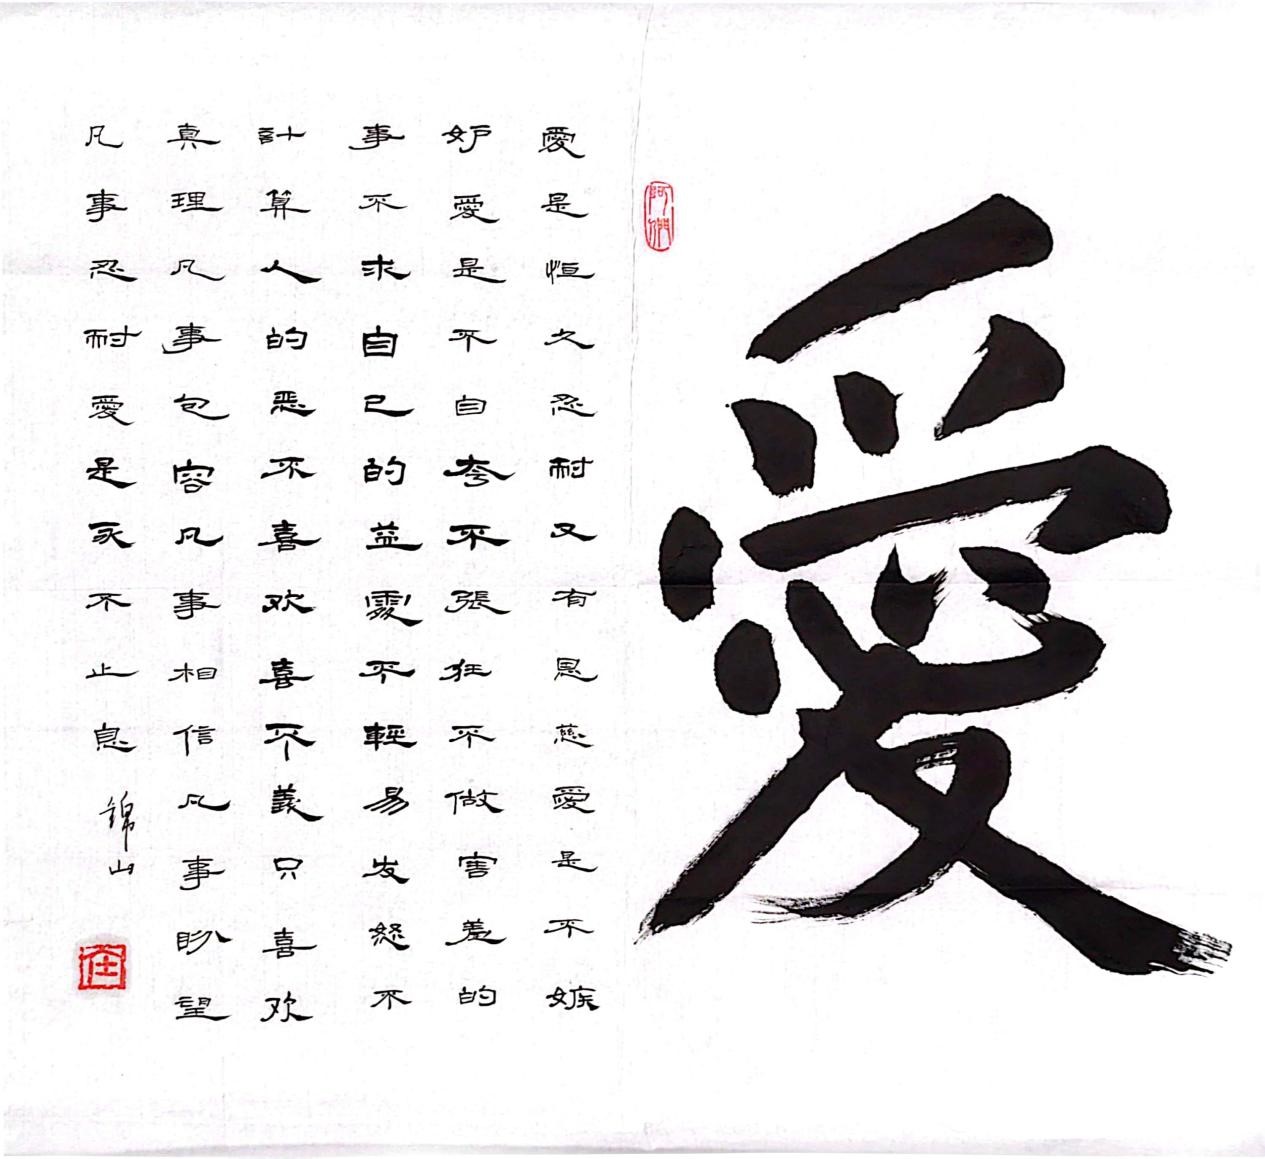 愛
阿們
愛是恒久忍耐又有恩慈愛是不嫉
妒愛是不自夸不張狂不做害羞的
事不求自己的益處不輕易发怒不
計算人的恶不喜欢喜不義只喜欢
真理凡事包容凡事相信凡事盼望
凡事忍耐愛是永不止息
錦山